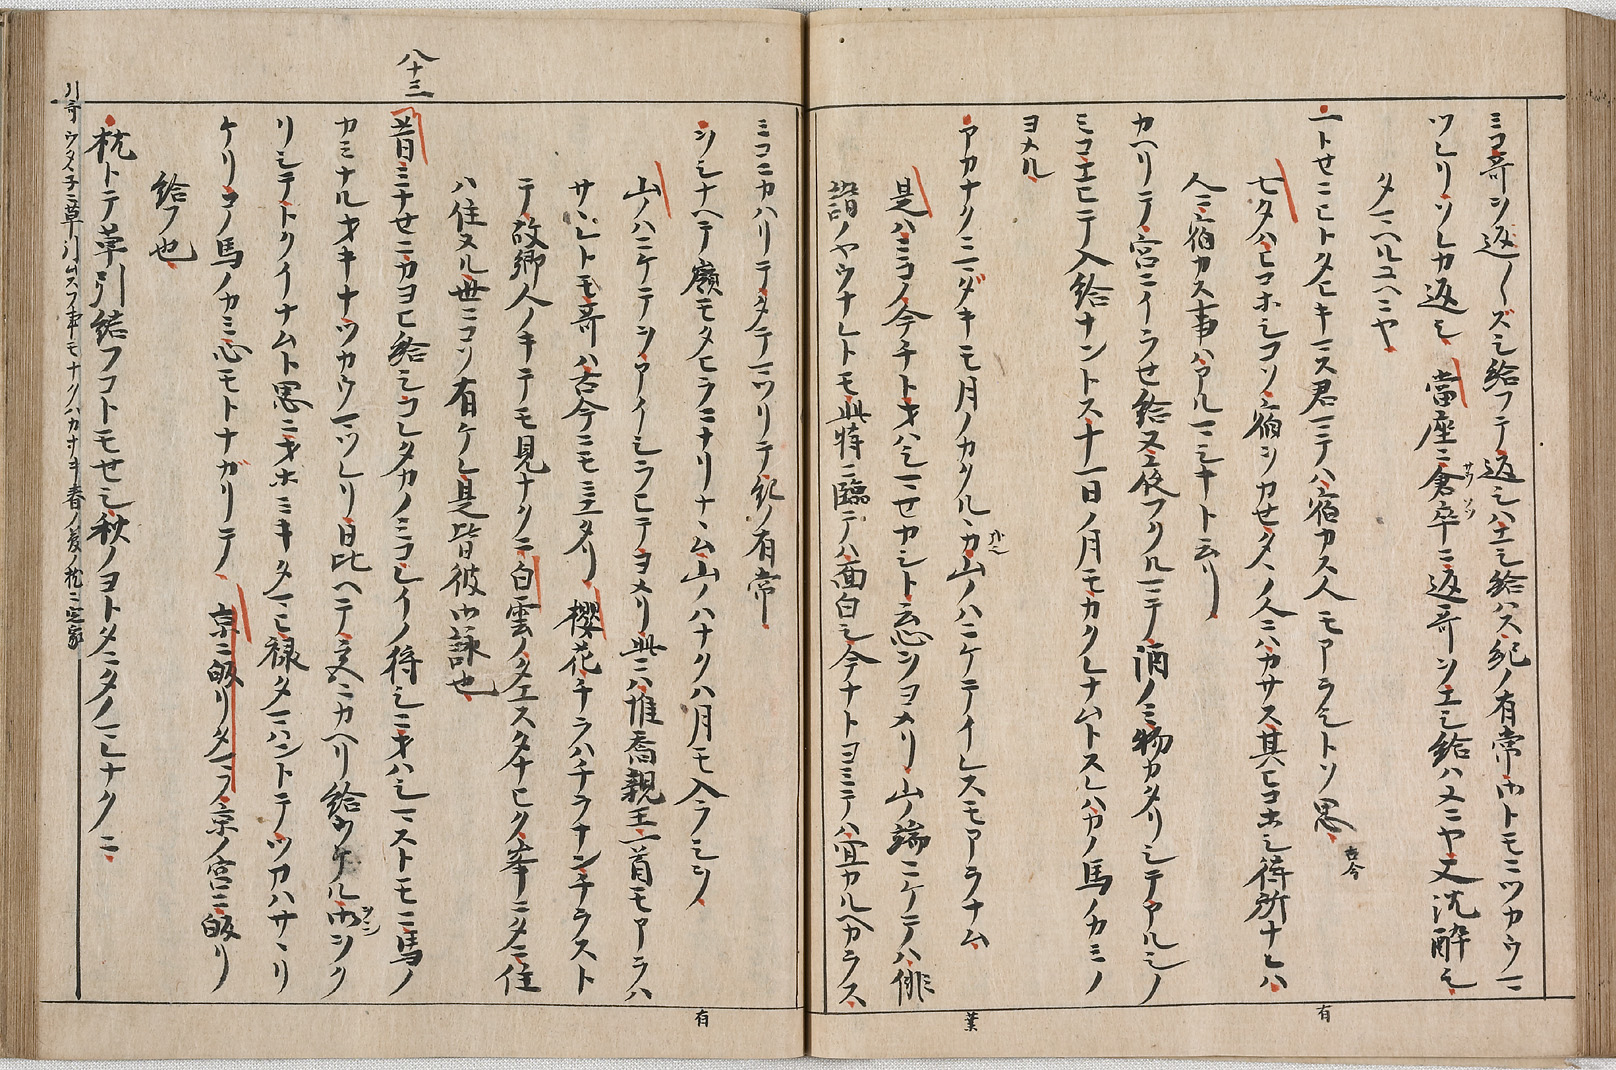 ミコ哥ヲ返〱ズシ給フテ返シハエシ給ハス紀ノ有常御トモニツカウマ
ツレリソレカ返シ當座ニ倉卒ニ返哥ヲエシ給ハヌニヤ又沈酔シ
タマヘルユヘニヤ
一トセニヒトタヒキマス君マテハ宿カス人モアラシトソ思 古今
有
七夕ハヒコホシコソ宿ヲカセタヘノ人ニハカサス其ヒコホシ待所ナレハ
人ニ宿カス事ハアルマシキト云リ
カヘリテ宮ニイラせ給ヌ夜フクルマテ酒ノミ物カタリシテアルシノ
ミコエヒテ入給ナントス十一日ノ月モカクレナムトスレハカノ馬ノカミノ
ヨメル
アカナクニマダキモ月ノカクルヽカ山ノハニケテイレスモアラナム
業
是ハミコノ今チトオハシマせカシト云心ヲヨメリ山ノ端ニケテハ俳
諧ノヤウナレトモ興特ニ臨テハ面白シ今ナトヨミテハ宜カルヘカラス
ミコニカハリテタテマツリテ紀ノ有常
ヲシナヘテ嶺モタヒラニナリナヽム山ノハナクハ月モ入ラシヲ
有
山ノハニケテヲアイシラヒテヨメリ興ニハ惟喬親王一首モアラハ
サレトモ哥ハ古今ニモ三エタリ櫻花チラハチラナンチラスト
テ故郷人ノキテモ見ナクニ白雲ノタエスタナヒク峯ニタニ住
ハ住ヌル世ニコソ有ケレ是皆彼御詠也
八十三
昔ミナせニカヨヒ給シコレタカノミコレイノ狩シニオハシマストモニ馬ノ
カミナルオキナツカウマツレリ日比ヘテ宮ニカヘリ給ウケル御ヲク
リシテトクイナムト思ニオホミキタマヒ禄タマハントテツカハサヽリ
ケリコノ馬ノカミ心モトナガリテ京ニ皈リタマフ京ノ宮ニ皈リ
給フ也
枕トテ草引結フコトモせシ秋ノヨトタニタノマレナクニ